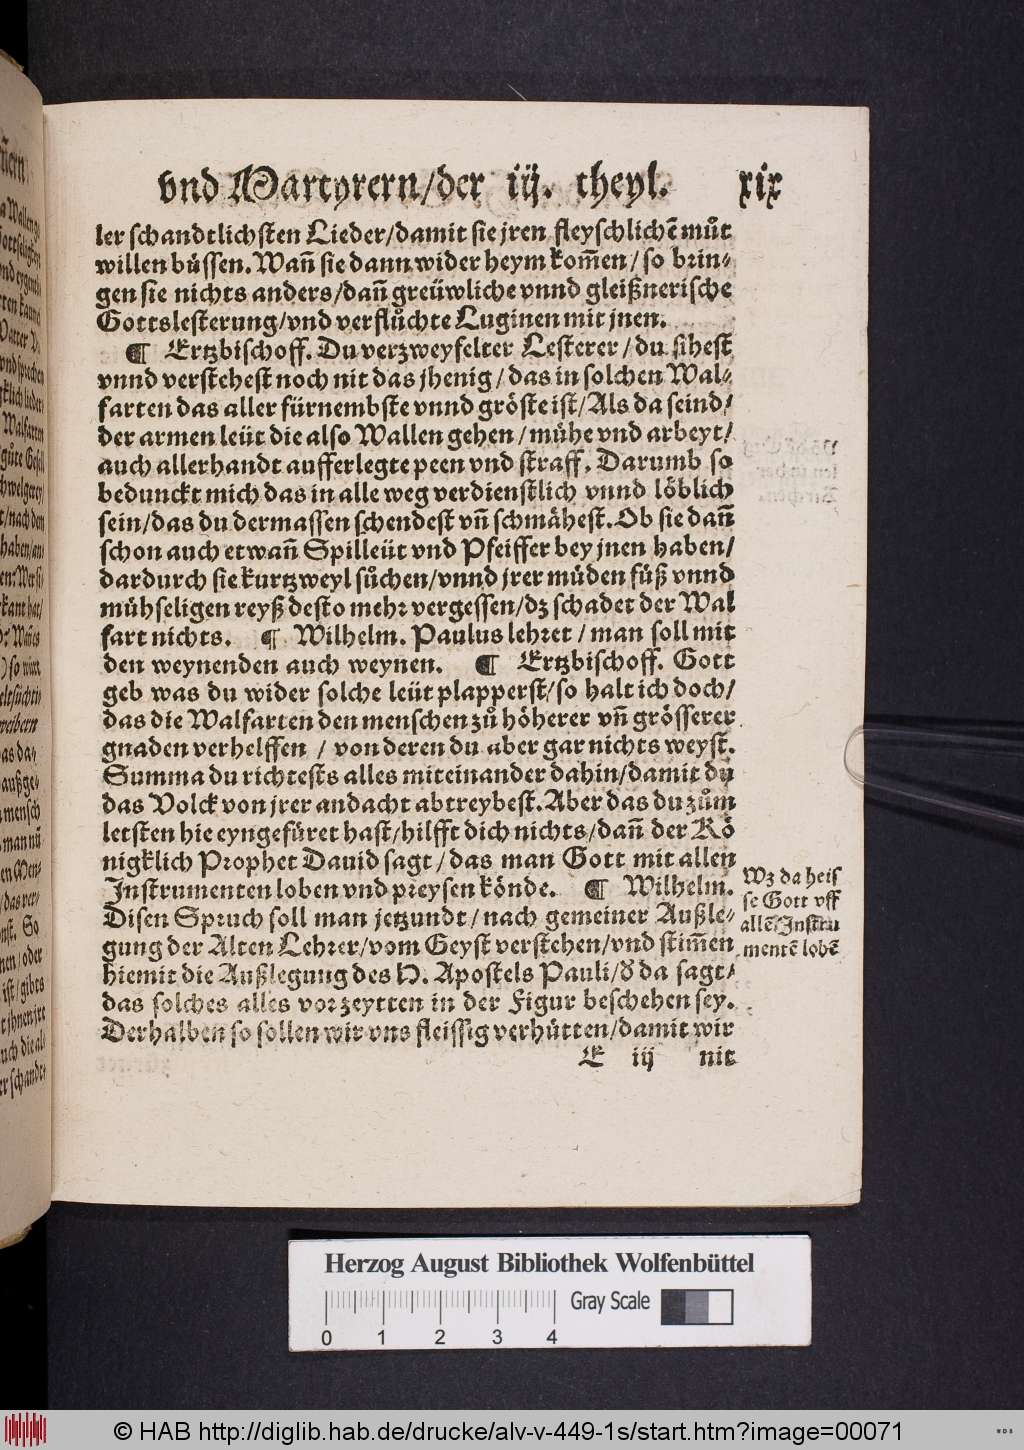 vnd Martyrern/der iij. theyl. xix
ler schandtlichsten Lieder/damit sie jren fleyschlichē můt
willen büssen. Wañ sie dann wider heym kom̃en/so brin⸗
gen sie nichts anders/dañ greüwliche vnnd gleißnerische
Gottslesterung/vnd verflůchte Luginen mit jnen.
¶ Ertzbischoff. Du verzweyfelter Lesterer/du sihest
vnnd verstehest noch nit das jhenig/das in solchen Wal⸗
farten das aller fürnembste vnnd gröste ist/Als da seind/
der armen leüt die also Wallen gehen/mühe vnd arbeyt/
auch allerhandt aufferlegte peen vnd straff. Darumb so
bedunckt mich das in alle weg verdienstlich vnnd löblich
sein/das du dermassen schendest vñ schmähest. Ob sie dañ
schon auch etwañ Spilleüt vnd Pfeiffer bey jnen haben/
dardurch sie kurtzweyl sůchen/vnnd jrer müden füß vnnd
mühseligen reyß desto mehr vergessen/dz schadet der Wal
fart nichts. ¶ Wilhelm. Paulus lehret/man soll mit
den weynenden auch weynen. ¶ Ertzbischoff. Gott
geb was du wider solche leüt plapperst/so halt ich doch/
das die Walfarten den menschen zů höherer vñ grösserer
gnaden verhelffen / von deren du aber gar nichts weyst.
Summa du richtests alles miteinander dahin/damit du
das Volck von jrer andacht abtreybest. Aber das du zům
letsten hie eyngefüret hast/hilfft dich nichts/dañ der Kö
nigklich Prophet Dauid sagt/das man Gott mit allen
Instrumenten loben vnd preysen könde. ¶ Wilhelm.
Disen Spruch soll man jetzundt/nach gemeiner Außle⸗
gung der Alten Lehrer/vom Geyst verstehen/vnd stim̃en
hiemit die Außlegung des H. Apostels Pauli/d' da sagt/
das solches alles vorzeytten in der Figur beschehen sey.
Derhalben so sollen wir vns fleissig verhütten/damit wir
E iij nit
Wz da heis
se Gott vff
allē Instru
mentē lobē
Herzog August Bibliothek Wolfenbüttel
0 1 2 3 4
Gray Scale
© HAB http://diglib.hab.de/drucke/alv-v-449-1s/start.htm?image=00071